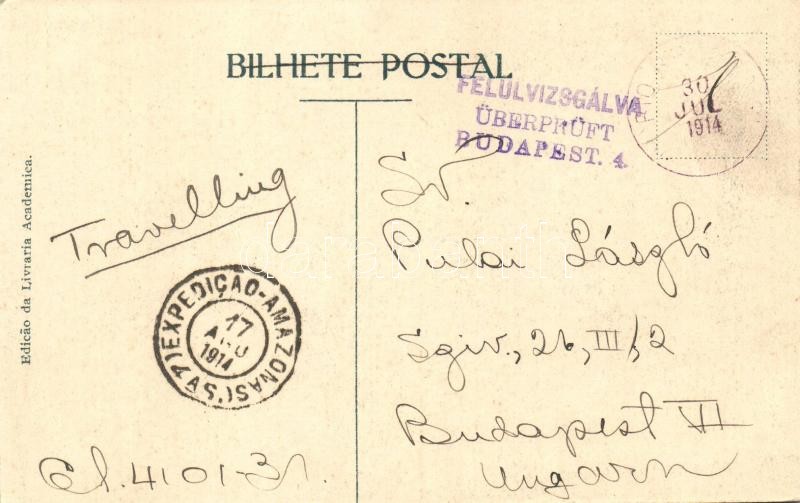 BILHETE POSTAL
FELÜLVIZSGÁLVA
ÜBERPRÜFT
BUDAPEST. 4.
30
JUL
1914
Edicão da Livraria Academica.
Travelling
EXPEDIÇÃO-AMAZONAS
17
1914
Pulai László
Sziv., 26, III/2
Budapest VI
Ungarn